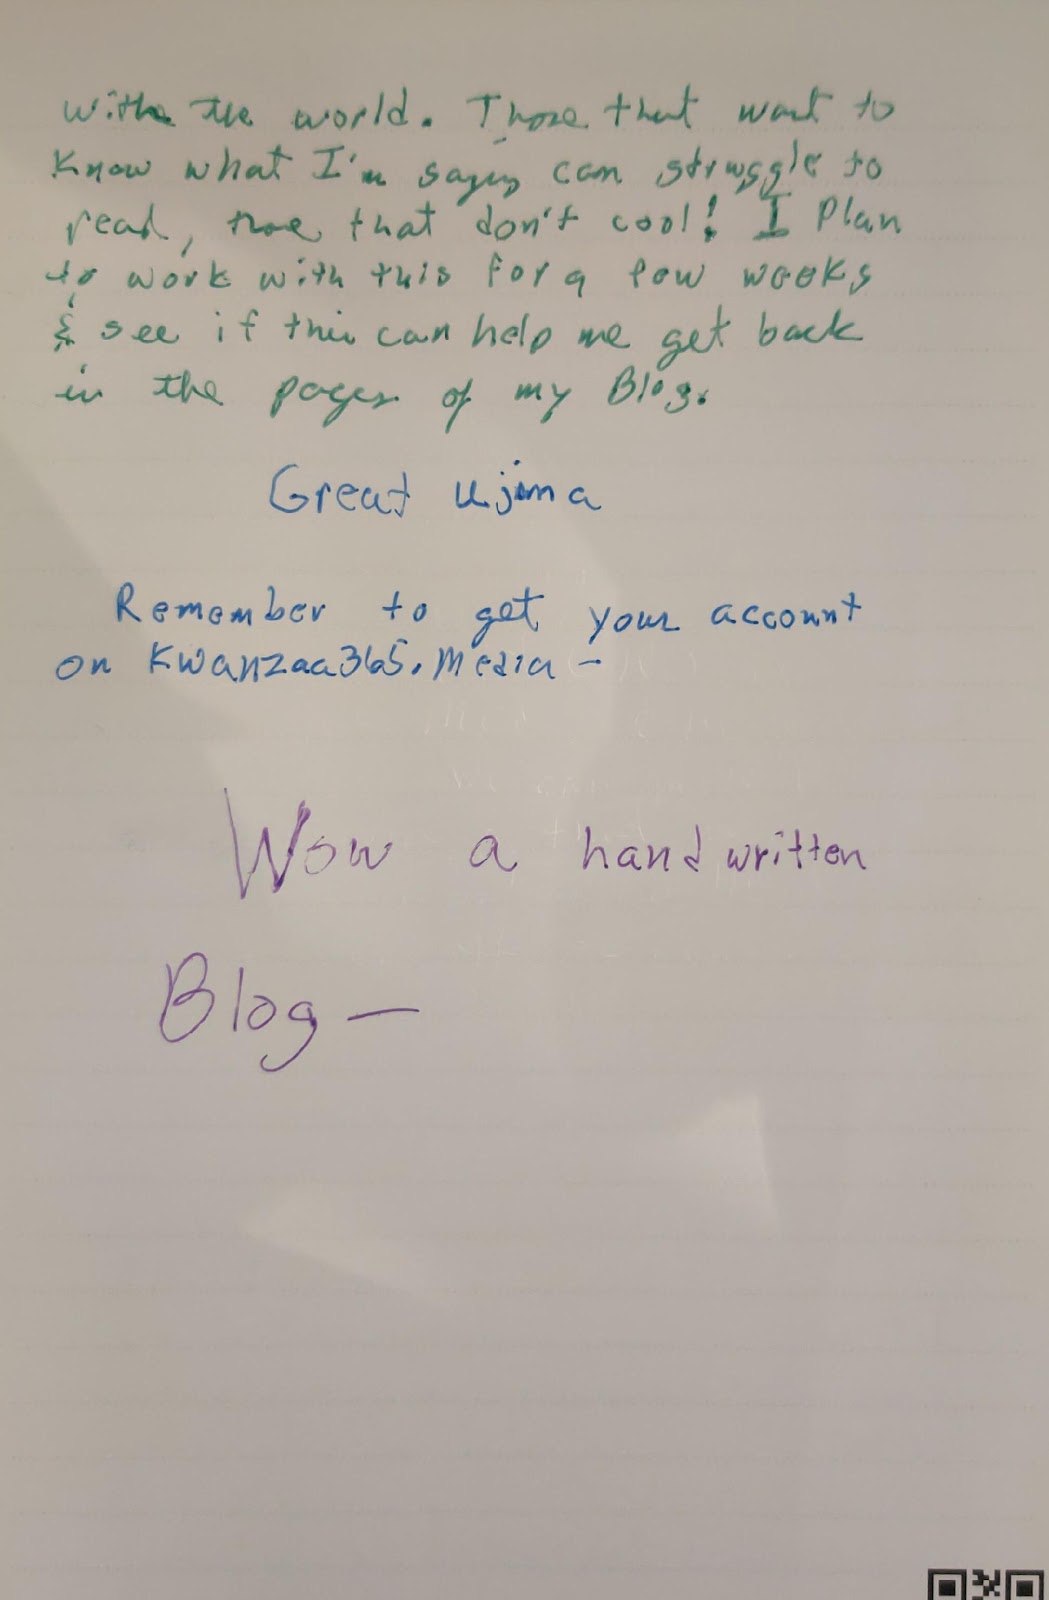 with the world. Those that want to
Know what I'm saying can struggle to
read, those that don't cool! I Plan
to work with this for a few weeks
& see if this can help me get back
in the pages of my Blog.
Great Ujima
Remember to get your account
on Kwanzaa365.Media -
Wow a handwritten
Blog -